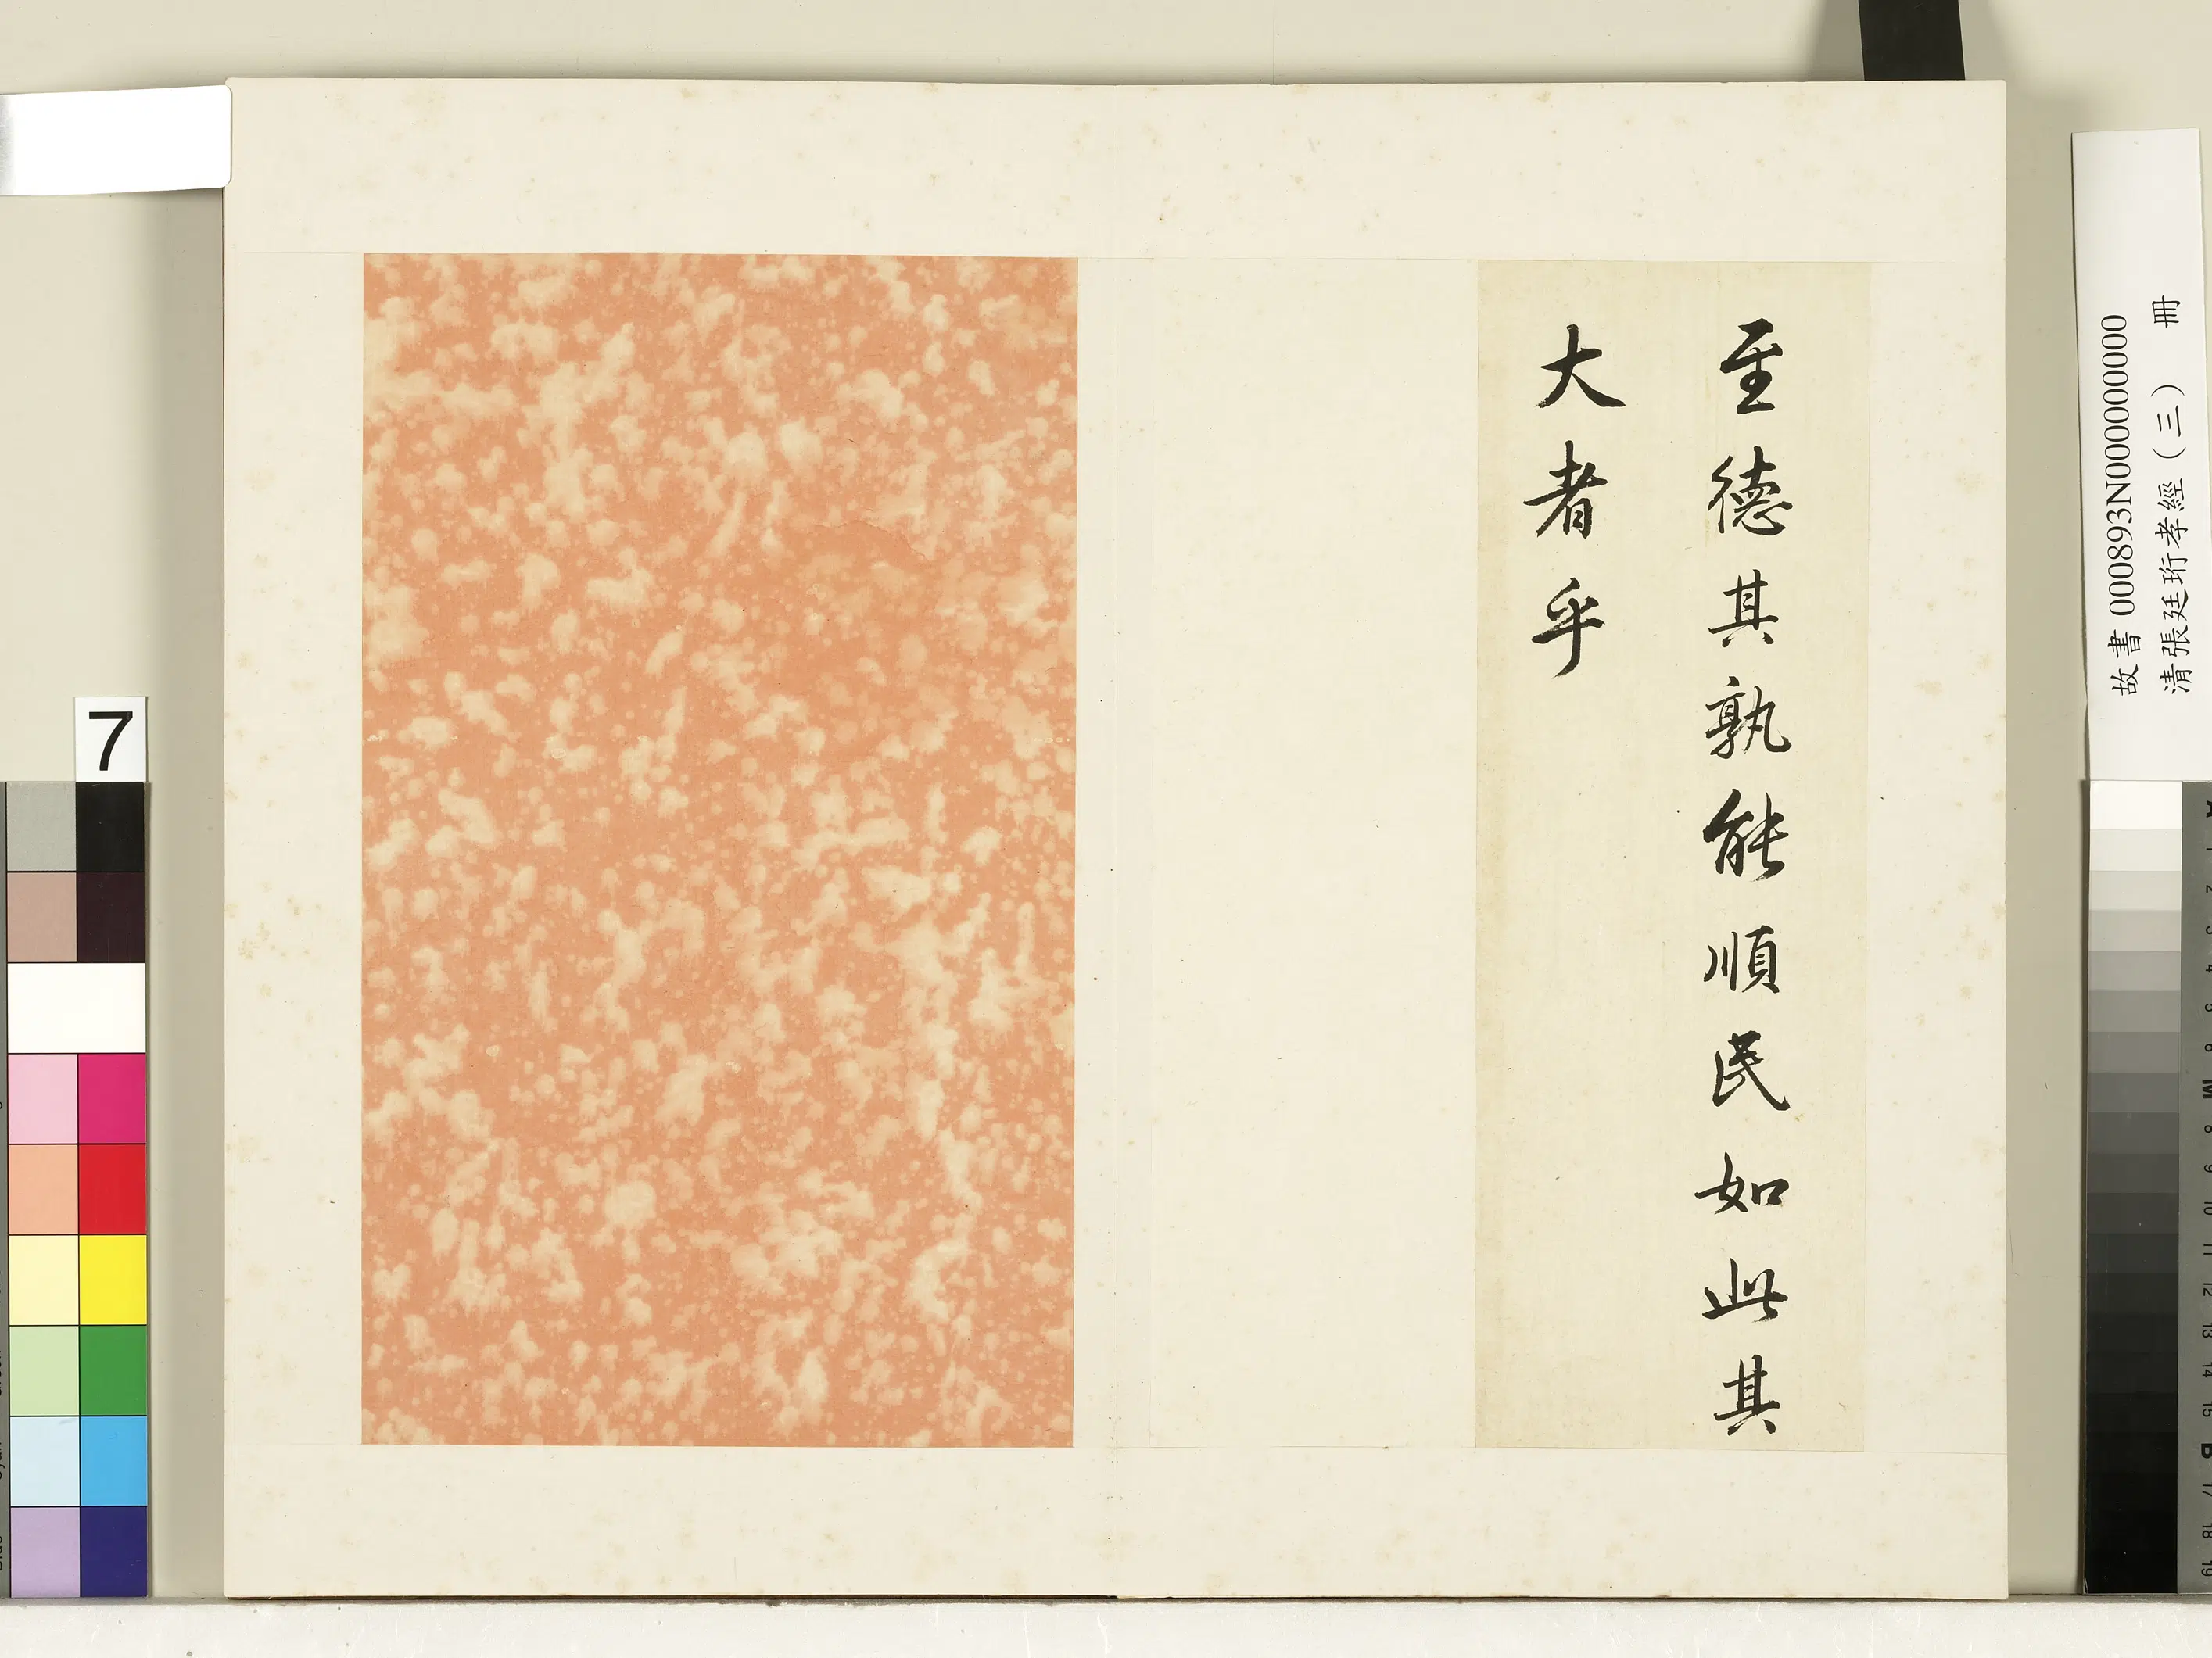 至德其孰能順民如此其
大者乎
故書 000893N000000000
清張廷珩孝經(三) 冊
7